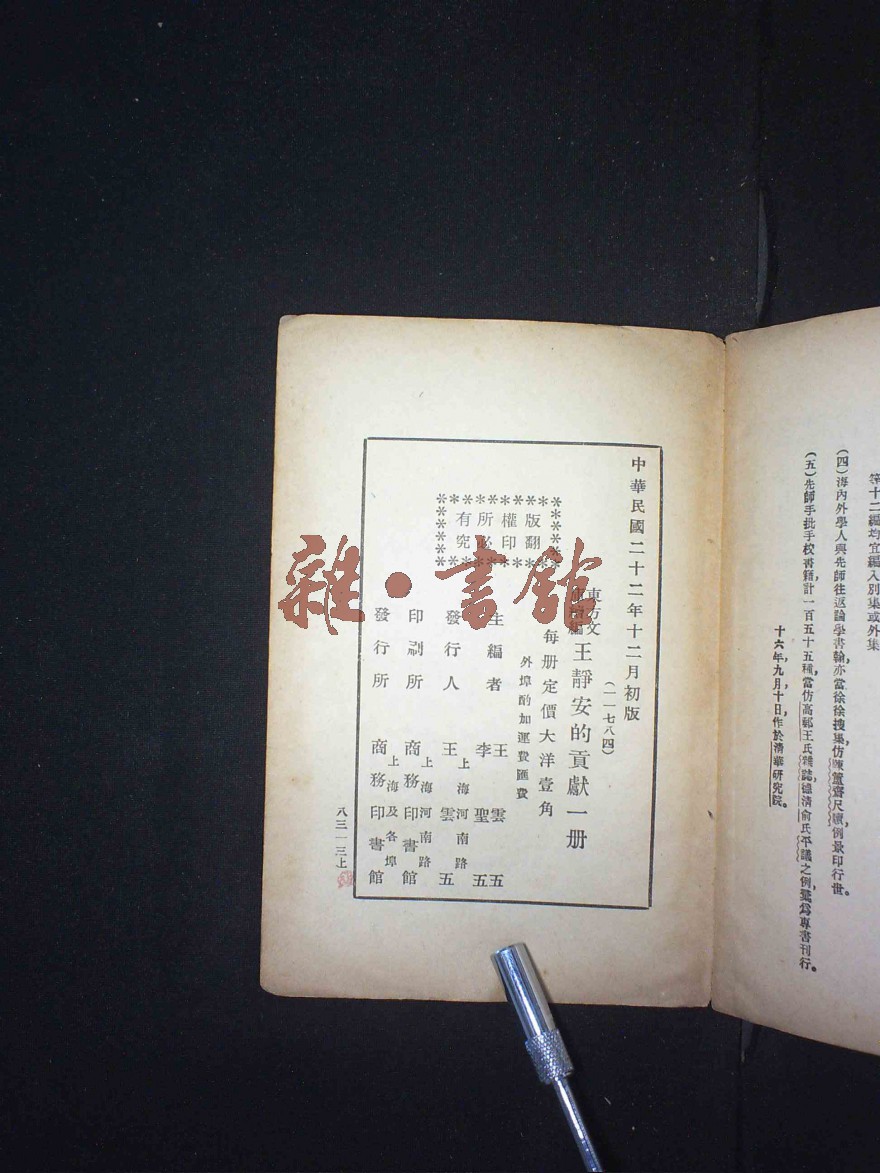 第十二編均宜編入別集或外集
(四)海內外學人與先師往返論學書翰,亦當徐徐搜集,仿陳簠齋尺牘例景印行世。
(五)先師手批手校書籍,計一百五十五種,當仿高郵王氏雜誌,德清俞氏平議之例,彙爲專書刊行。
十六年,九月,十日,作於清華研究院。
中華民國二十二年十二月初版
(一一七八四)
東方文
王靜安的貢獻一册
每册定價大洋壹角
外埠酌加運費匯費
版翻
權印
所必
有究
主編者 王雲五
李聖五
發行人 王雲五
上海河南路
印刷所 商務印書館
上海及各埠
發行所 商務印書館
八三一三上
雜·書館